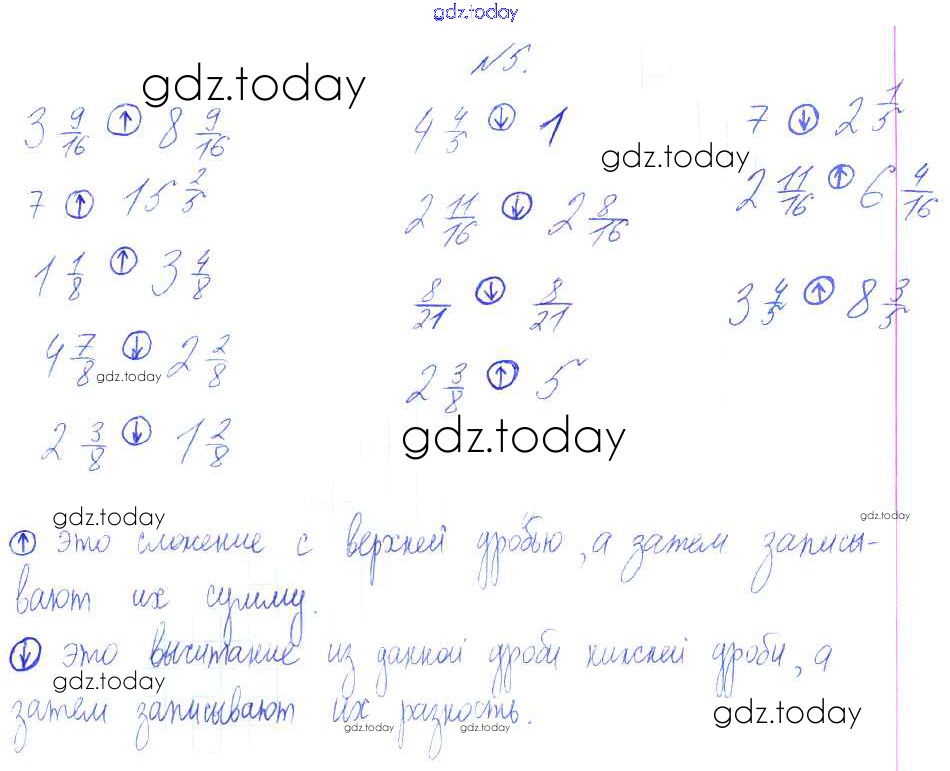 gdz.today
№5.
gdz.today
3 9/16 ↑ 8 9/16
4 4/5 ↓ 1
7 ↓ 2 1/5
gdz.today
7 ↑ 15 2/5
2 11/16 ↓ 2 8/16
2 11/16 ↑ 6 4/16
1 1/8 ↑ 3 4/8
8/21 ↓ 8/21
3 4/5 ↑ 8 3/5
4 7/8 ↓ 2 2/8
gdz.today
2 3/8 ↑ 5
2 3/8 ↓ 1 2/8
gdz.today
gdz.today
gdz.today
↑ это сложение с верхней дробью, а затем записы-
вают их сумму.
↓ это вычитание из данной дроби нижней дроби, а
gdz.today
затем записывают их разность.
gdz.today
gdz.today
gdz.today